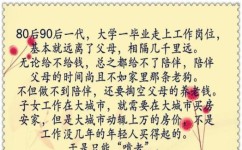 80后90后一代，大学一毕业走上工作岗位，
基本就远离了父母，相隔几千里远。
无论给不给钱，总之都给不了陪伴，陪伴
父母的时间尚且不如家里那条老狗。
不但做不到陪伴，还要掏空父母的养老钱。
子女工作在大城市，就需要在大城市买房
安家，但是大城市动辄上万的房价，不是
工作没几年的年轻人买得起的。
于是只能“啃老”